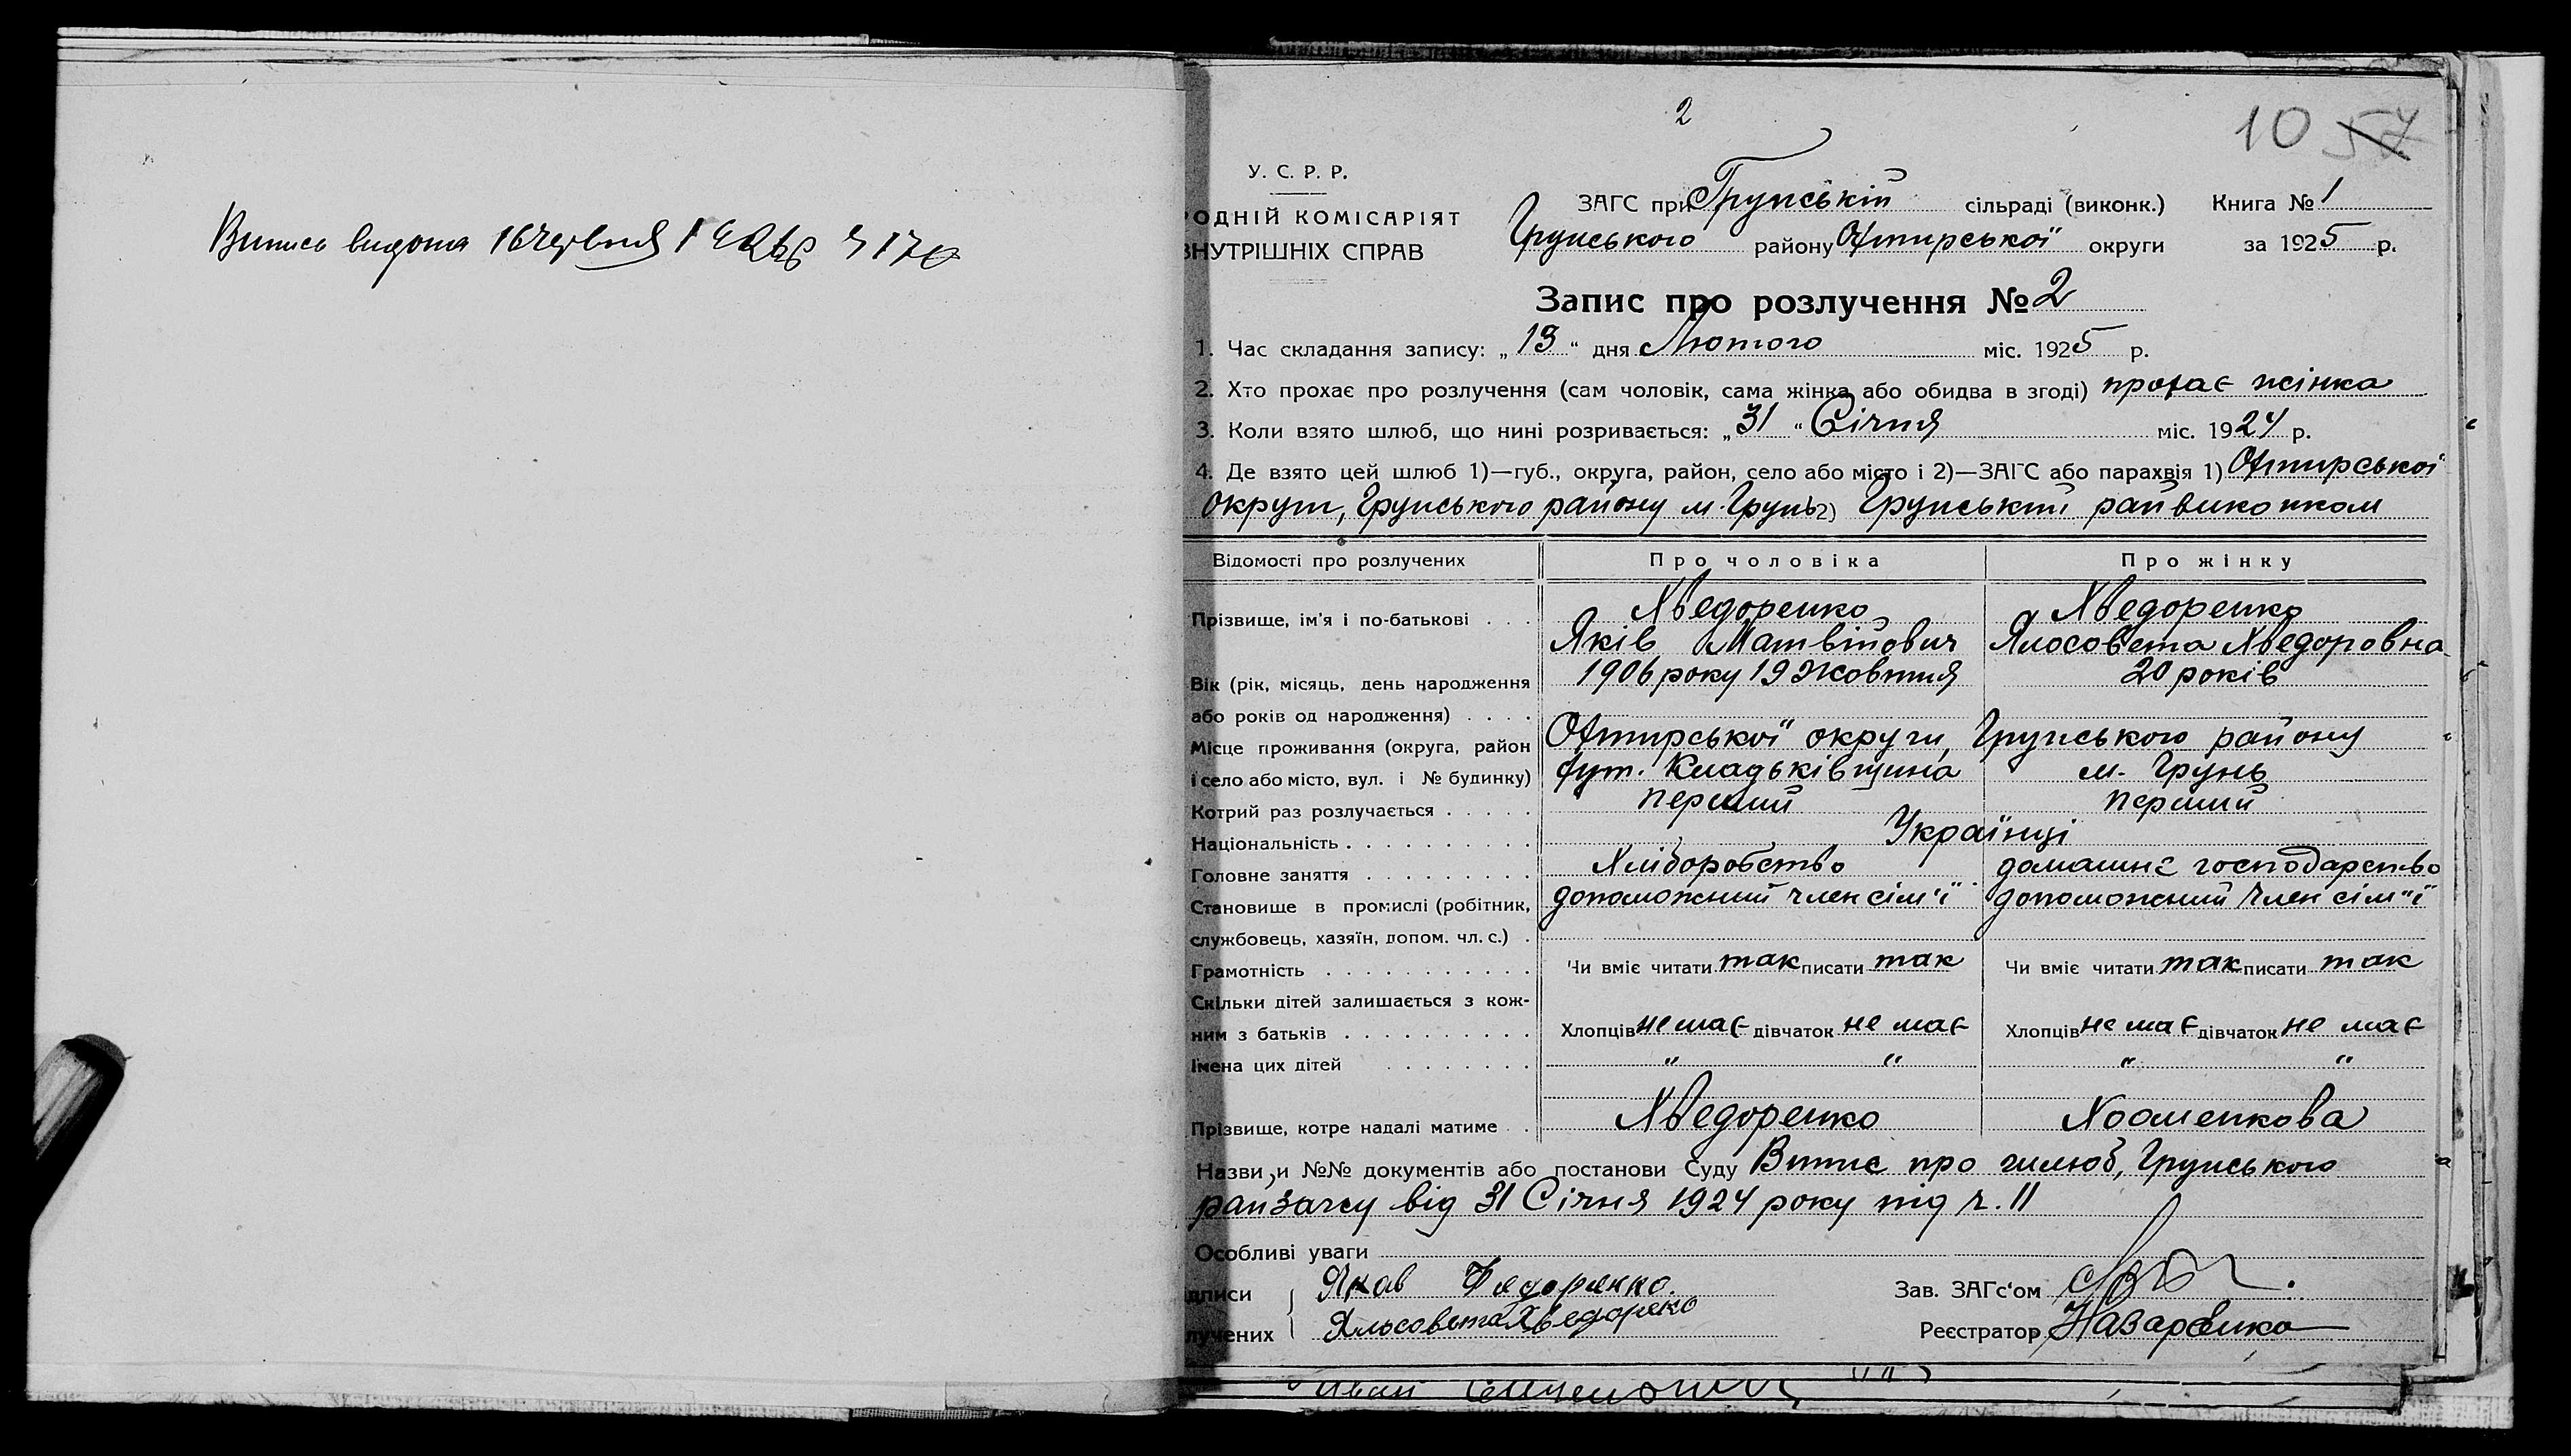 Випись видана 16 червня 1926 р Ч 170
2
10 57
У. С. Р. Р.
ОДНІЙ КОМІСАРІЯТ
ВНУТРІШНІХ СПРАВ
ЗАГС при Грунській сільраді (виконк.) Книга № 1
Грунського району Охтирської округи за 1925 р.
Запис про розлучення № 2
1. Час складання запису: „19“ дня Лютого міс. 1925 р.
2. Хто прохає про розлучення (сам чоловік, сама жінка або обидва в згоді) прохає жінка
3. Коли взято шлюб, що нині розривається: „31“ Січня міс. 1924 р.
4. Де взято цей шлюб 1)—губ., округа, район, село або місто і 2)—ЗАГС або парахвія 1) Охтирської
округи, Грунського району м. Грунь 2) Грунський райвиконком
Відомості про розлучених Про чоловіка Про жінку
Хведоренко Хведоренко
Прізвище, ім'я і по-батькові . . .
Яків Матвійович Ялосовета Хведоровна
Вік (рік, місяць, день народження 1906 року 19 Жовтня 20 років
або років од народження) . . . .
Місце проживання (округа, район Охтирської округи, Грунського району
і село або місто, вул. і № будинку) хут. Кладьківщина м. Грунь
Котрий раз розлучається . . . . . перший перший
Національність . . . . . . . . . . Українці
Головне заняття . . . . . . . . . Хліборобство домашнє господарство
Становище в промислі (робітник, допоможний член сім'ї допоможний член сім"ї
службовець, хазяїн, допом. чл. с.) .
Грамотність . . . . . . . . . . . Чи вміє читати так писати так Чи вміє читати так писати так
Скільки дітей залишається з кож-
ним з батьків . . . . . . . . . . Хлопців не має дівчаток не має Хлопців не має дівчаток не має
Імена цих дітей . . . . . . . . " " " "
Прізвище, котре надалі матиме . . Хведоренко Хоменкова
Назви, и №№ документів або постанови Суду Випис про шлюб, Грунського
райзагсу від 31 Січня 1924 року під ч. 11
Особливі уваги
дписи Яков Федоренко. Зав. ЗАГс'ом
лучених Яльсовета Хведореко Реєстратор Назаренко